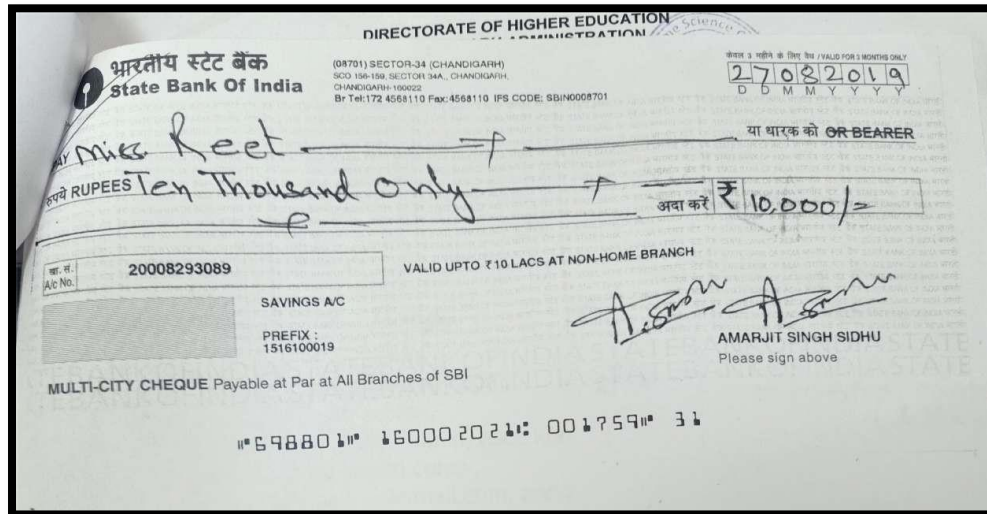 DIRECTORATE OF HIGHER EDUCATION
ADMINISTRATION
Science
भारतीय स्टेट बैंक
State Bank Of India
(08701) SECTOR-34 (CHANDIGARH)
SCO 156-159, SECTOR 34A,, CHANDIGARH,
CHANDIGARH- 160022
Br Tel:172 4568110 Fax:4568110 IFS CODE: SBIN0008701
केवल 3 महीने के लिए वैध / VALID FOR 3 MONTHS ONLY
27082019
D D M M Y Y Y Y
PAY Miss Reet या धारक को OR BEARER
रुपये RUPEES Ten Thousand Only
अदा करें ₹ 10,000/=
खा. सं. A/c No. 20008293089
VALID UPTO ₹ 10 LACS AT NON-HOME BRANCH
SAVINGS A/C
PREFIX :
1516100019
AMARJIT SINGH SIDHU
Please sign above
MULTI-CITY CHEQUE Payable at Par at All Branches of SBI
⑈698801⑈ 160002021⑆ 001759⑈ 31